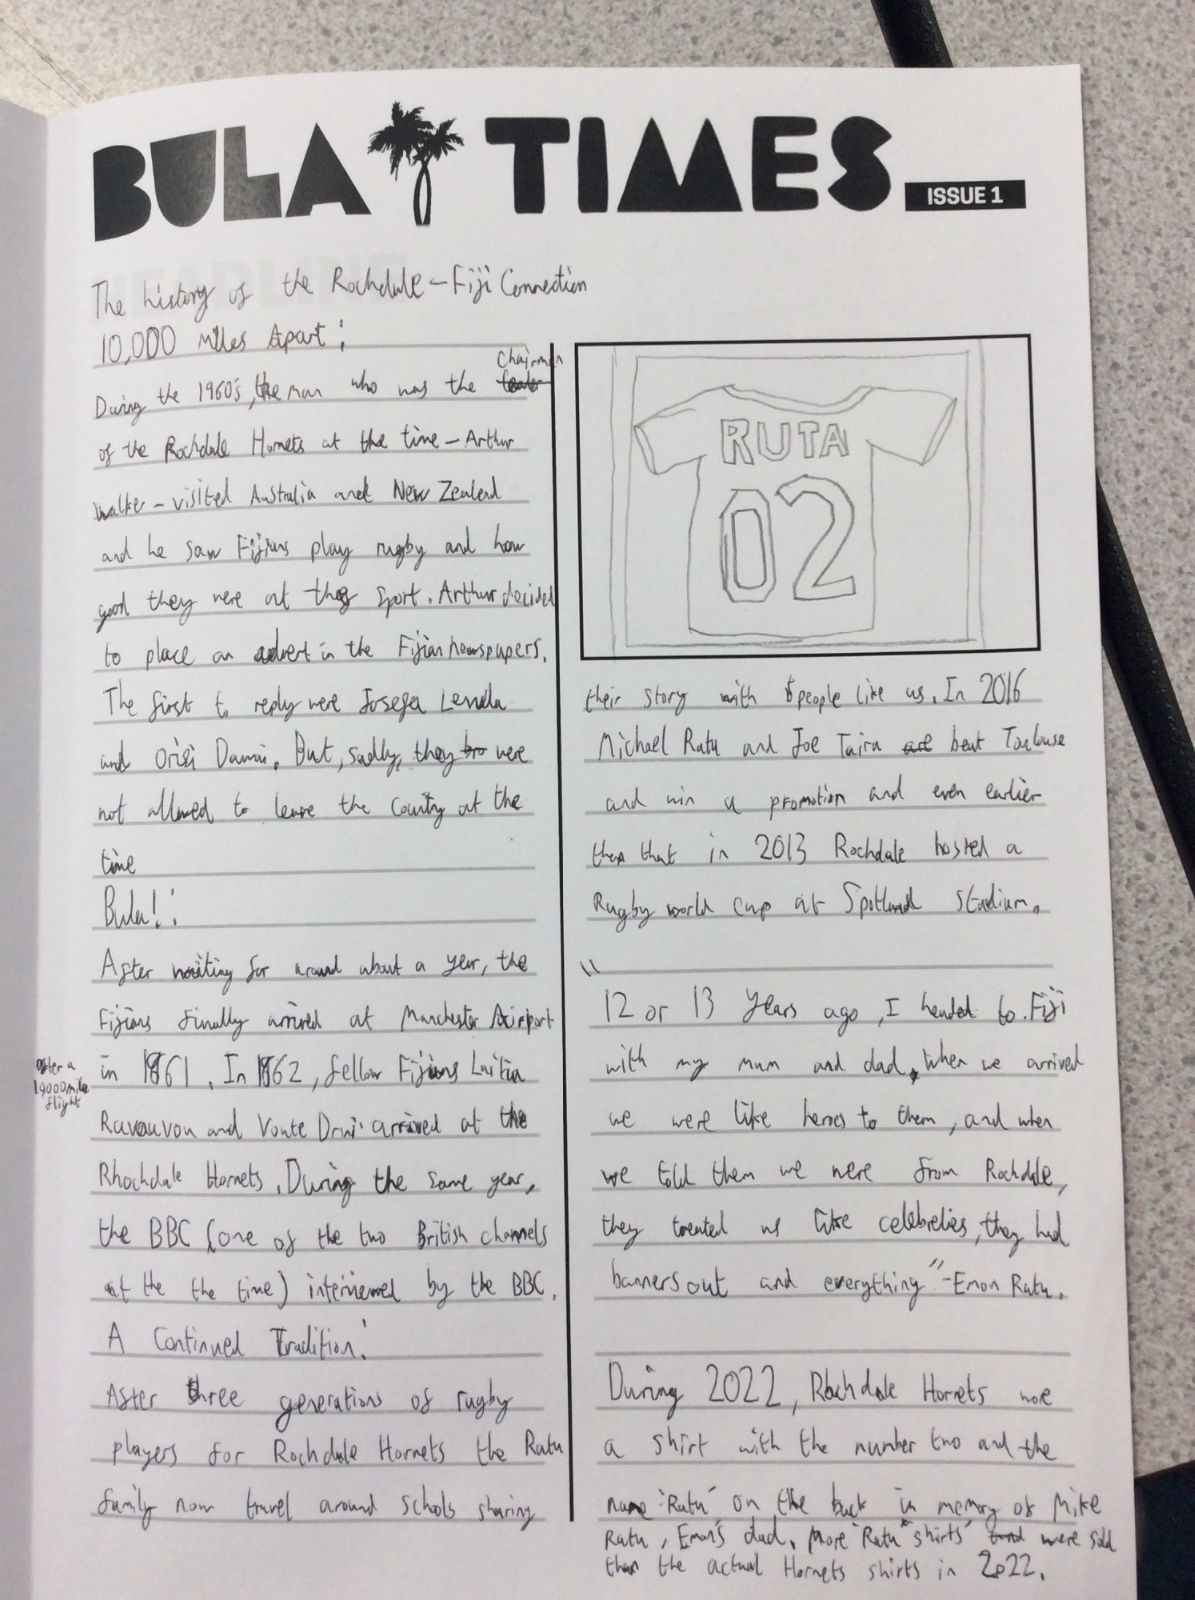 BULA TIMES
ISSUE 1
The history of the Rochdale - Fiji Connection
10,000 Miles Apart:
During the 1960's, the man who was the Chairman
of the Rochdale Hornets at the time - Arthur
Walker - visited Australia and New Zealand
and he saw Fijians play rugby and how
good they were at the sport. Arthur decided
to place an advert in the Fijian newspapers.
The first to reply were Josefa Levula
and Orisi Dawai. But, sadly, they were
not allowed to leave the country at the
time
Bula!:
After waiting for around about a year, the
Fijians finally arrived at Manchester Airport
after a
10,000 mile
flight
in 1961. In 1962, fellow Fijians Laitia
Ravouvou and Voate Drui arrived at the
Rhochdale Hornets. During the same year,
the BBC (one of the two British channels
at the the time) interviewed by the BBC.
A Continued Tradition:
After three generations of rugby
players for Rochdale Hornets the Ratu
family now travel around schols sharing
RUTA
02
their story with people like us. In 2016
Michael Ratu and Joe Taira beat Toulouse
and win a promotion and even earlier
than that in 2013 Rochdale hosted a
Rugby world cup at Spotland stadium.
"
12 or 13 years ago, I headed to Fiji
with my mum and dad, when we arrived
we were like heroes to them, and when
we told them we were from Rochdale,
they treated us like celebreties, they had
banners out and everything" - Emon Ratu.
During 2022, Rochdale Hornets wore
a shirt with the number two and the
name 'Ratu' on the back in memory of Mike
Ratu, Emon's dad. More "Ratu" shirts were sold
than the actual Hornets shirts in 2022.